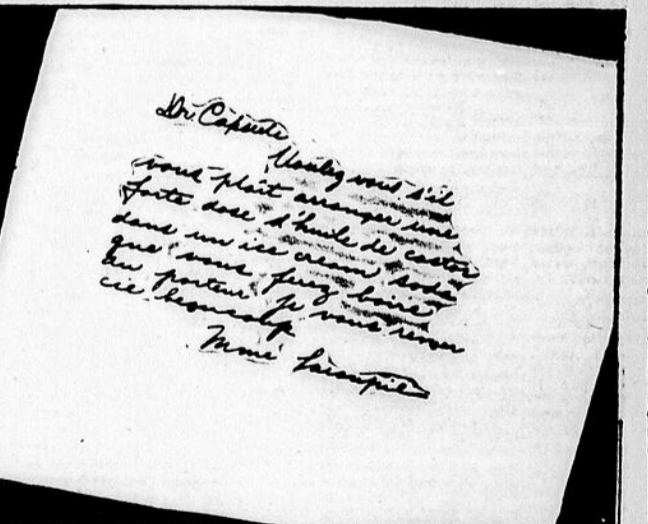 Dr. Capsule
Voulez vous s'il
vous plait arranger une
forte dose d'huile de castor
dans un ice cream soda
que vous ferez boire
au porteur. Je vous remer
cie beaucoup
Mme